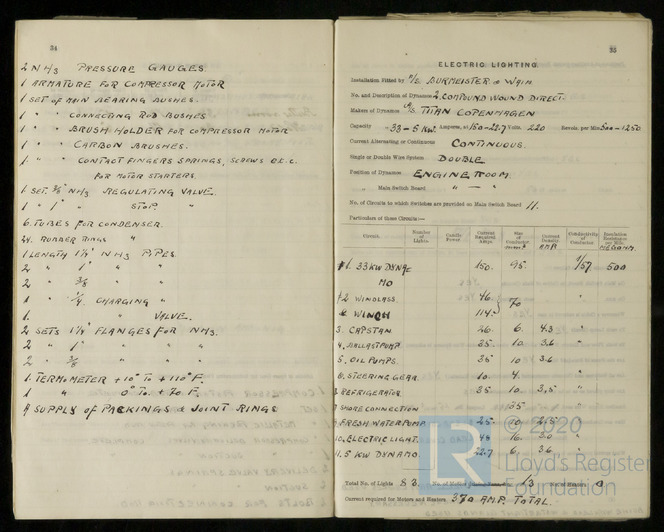 34
2 NH3 PRESSURE GAUGES
1 ARMATURE FOR COMPRESSOR MOTOR
1 SET OF MAIN BEARING BUSHES.
1 " " CONNECTING ROD BUSHES
1 " " BRUSH HOLDER FOR COMPRESSOR MOTOR
1 " " CARBON BRUSHES.
1 " " CONTACT FINGERS SPRINGS, SCREWS etc.
FOR MOTOR STARTERS.
1 SET. 3/8 NH3 REGULATING VALVE.
1 " 1" " STOP "
6. TUBES FOR CONDENSER.
24. RUBBER RINGS "
1 LENGTH 1 1/4" NH3 PIPES.
2 " 1" " "
2 " 3/8 " "
1 " 1/4 CHARGING "
1. " VALVE.
2 SETS 1 1/4" FLANGES FOR NH3.
2 " 1" " " "
2 " 3/8 " " "
1. TERMOMETER +10° To +110° F.
1 " 0° To. +70 F.
A SUPPLY OF PACKINGS & JOINT RINGS
35
ELECTRIC LIGHTING.
Installation Fitted by M/s BURMEISTER & WAIN
No. and Description of Dynamos 2. COMPOUND WOUND DIRECT.
Makers of Dynamos TITAN COPENHAGEN
Capacity 33-5 KW Amperes, at 150-22.7 Volts, 220 Revols. per Min. 500-1250
Current Alternating or Continuous CONTINUOUS.
Single or Double Wire System DOUBLE
Position of Dynamos ENGINE ROOM.
" Main Switch Board " — "
No. of Circuits to which Switches are provided on Main Switch Board 11.
Particulars of these Circuits:—
Circuit. Number of Lights. Candle Power. Current Required Amps. Size of Conductor Current Density AMP. Conductivity of Conductor. Insulation Resistance per Mile. MEGOHM.
1. 33 KW DYNA 150. 95. 1/57 500
MO
2 WINDLASS 46. 70 "
& WINCH 114.
3. CAPSTAN 26. 6. 4.3 "
4. BALLAST PUMP. 35. 10. 3.6 "
5. OIL PUMPS. 35 10 3.6 "
6. STEERING GEAR. 10. 4. "
REFRIGERATOR 35 10 3,5 "
SHORE CONNECTION
FRESH WATER PUMP 25. 10 2.5
10. ELECTRIC LIGHT. 48 16. 3.0 "
11. 5 KW DYNAMO 22.7 6. 3.6 "
Total No. of Lights 83. No. of Motors 13 No. of Heaters 0
Current required for Motors and Heaters 370 AMP. TOTAL.
LR
© 2020
Lloyd's Register
Foundation